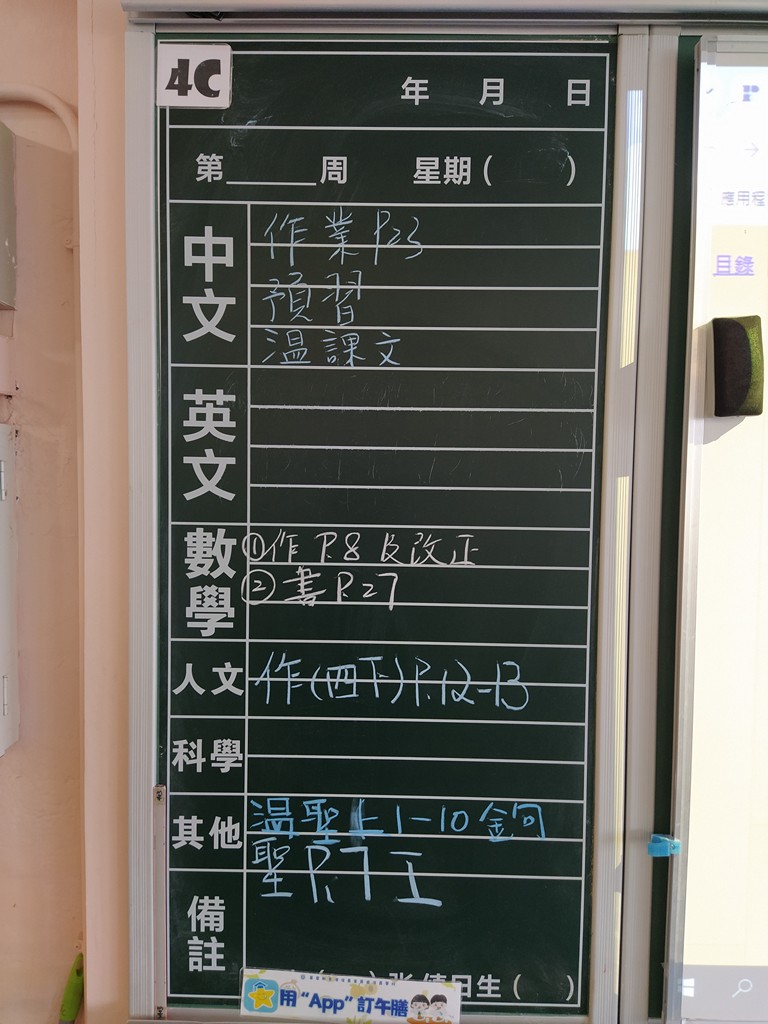 4C
年 月 日
第______周 星期( )
中文
作業P.23
預習
溫課文
英文
數學
①作 P.8 及改正
②書P.27
人文
作(四下)P.12-13
科學
其他
温聖上1-10金句
聖P.7 工
備註
值日生( )
用“App”訂午膳
應用程
目錄